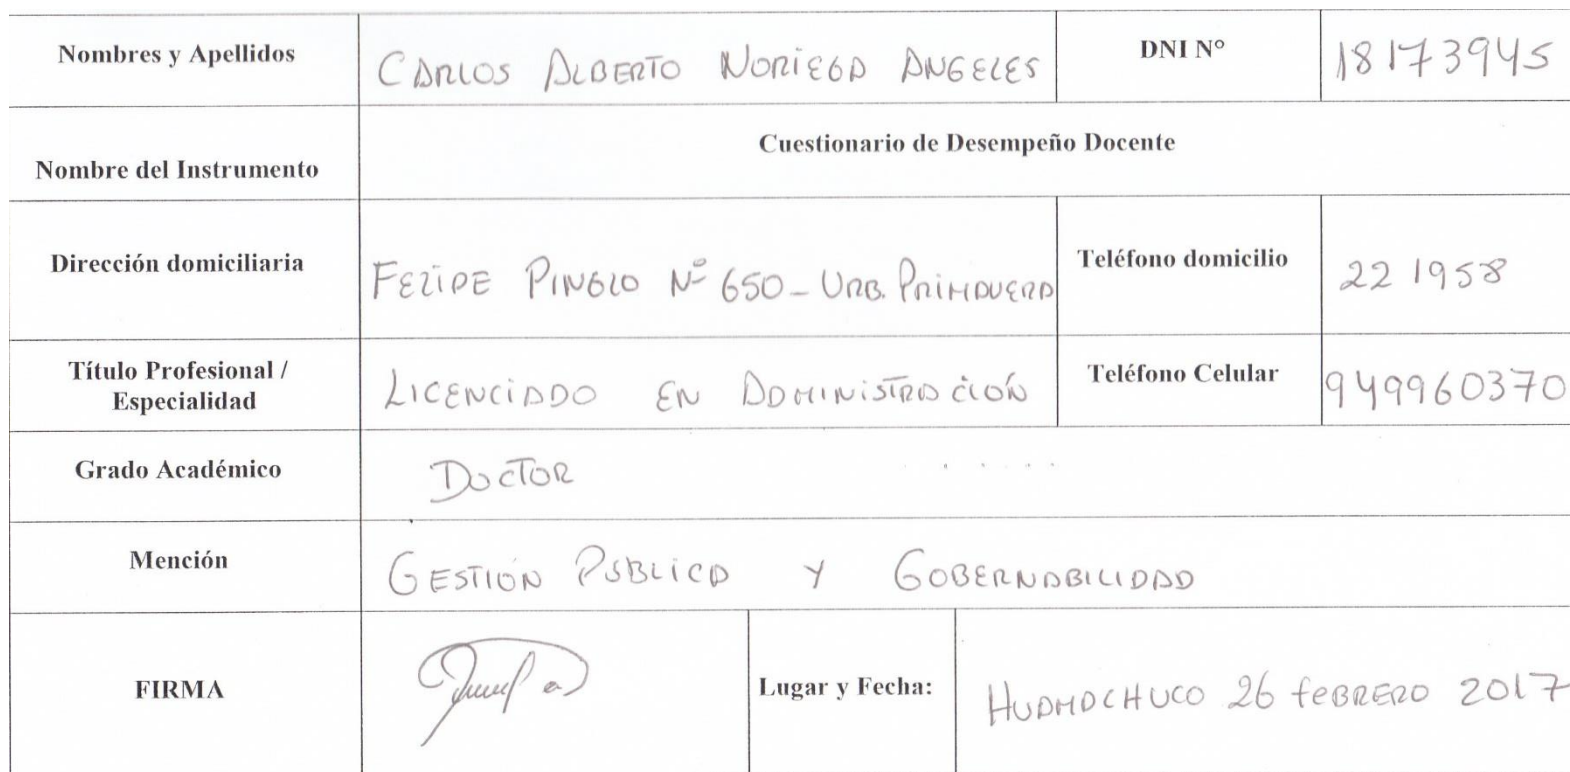 Nombres y Apellidos CARLOS ALBERTO NORIEGA ANGELES DNI N° 18173945
Nombre del Instrumento Cuestionario de Desempeño Docente
Dirección domiciliaria FELIPE PINGLO Nº 650 - URB. PRIMAVERA Teléfono domicilio 22 1958
Título Profesional /
Especialidad LICENCIADO EN ADMINISTRACIÓN Teléfono Celular 949960370
Grado Académico DOCTOR
Mención GESTIÓN PUBLICA Y GOBERNABILIDAD
FIRMA Lugar y Fecha: HUAMACHUCO 26 FEBRERO 2017